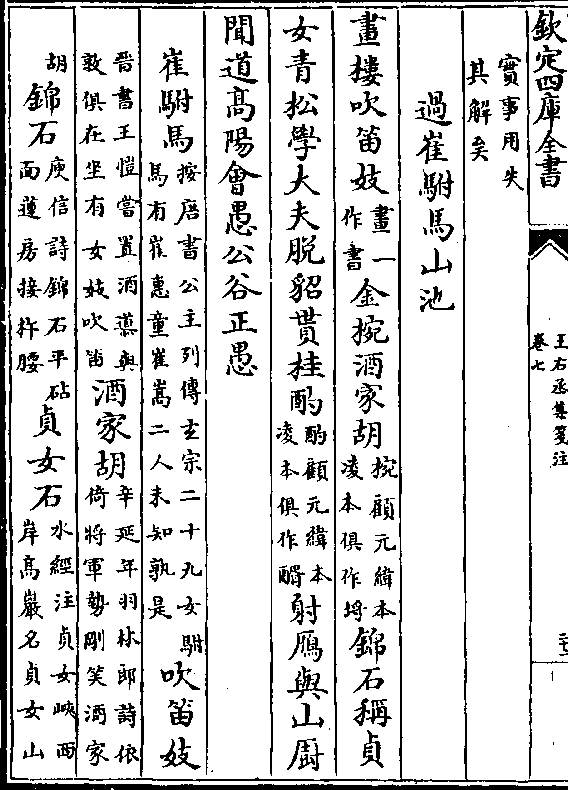 欽定四庫全書
王右丞集箋注
卷七
實事用失
其解矣
過崔駙馬山池
畫樓吹笛妓畫一作書金椀酒家胡椀顧元緯本凌本俱作埒錦石稱貞
女青松學大夫脫貂貰桂酌酌顧元緯本凌本俱作醑射鴈與山厨
聞道髙陽會愚公谷正愚
崔駙馬按唐書公主列傳玄宗二十九女駙馬有崔惠童崔嵩二人未知孰是吹笛妓
晉書王愷嘗置酒導與敦俱在坐有女妓吹笛酒家胡辛延年羽林郎詩依倚將軍勢剛笑酒家
胡錦石庾信詩錦石平砧面蓮房接杵腰貞女石水經注貞女峽西岸髙巖名貞女山